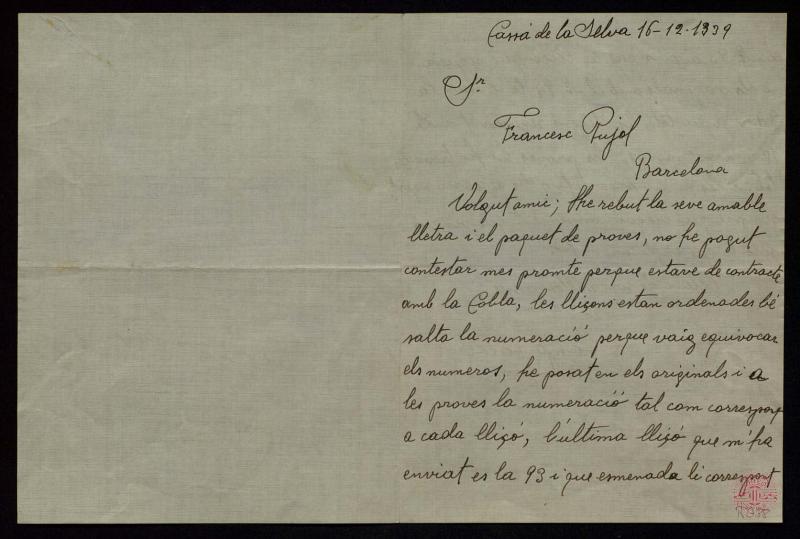 Cassá de la Selva 16-12-1939
Sr
Francesc Pujol
Barcelona
Volgut amic; He rebut la seve amable
lletra i el paquet de proves, no he pogut
contestar mes promte perque estave de contracte
amb la Cobla, les lliçons estan ordenades bé
salta la numeració perque vaig equivocar
els numeros, he posat en els originals i a
les proves la numeració tal com correspon
a cada lliçó, l'última lliçó que m'ha
enviat es la 93 i que esmenada li correspont